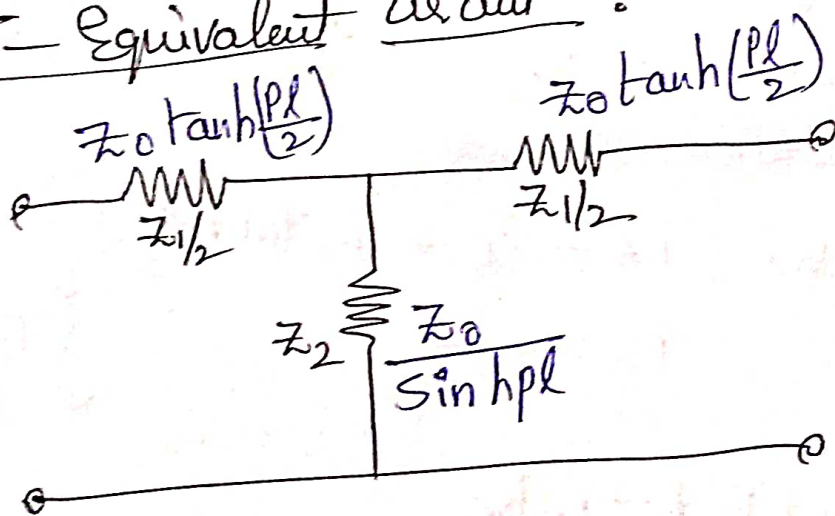 – Equivalent :
Z0 tanh(Pl/2)
Z0 tanh(Pl/2)
Z1/2
Z1/2
Z2
Z0/Sin hpl